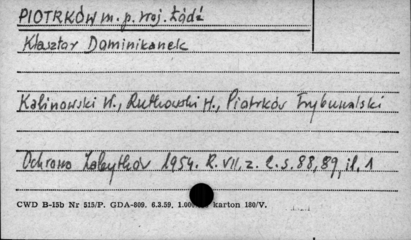 PIOTRKÓW m. p. woj. Łódź
Klasztor Dominikanek
Kalinowski W., Rutkowski H., Piotrków Trybunalski
Ochrona Zabytków 1954. R. VII, z. 2. s. 88, 89, il. 1
CWD B-15b Nr 515/P. GDA-809. 6.3.59. 1.00 karton 180/V.